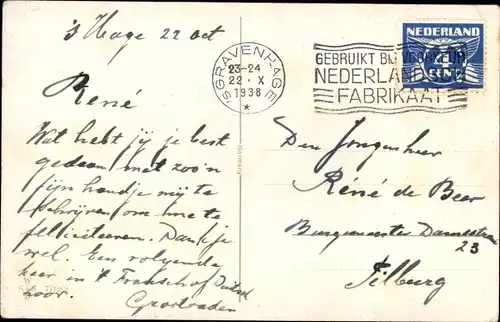 's Hage 22 oct
René
Wat hebt jij je best
gedaan met zoo'n
fijn handje mij te
schrijven om me te
feliciteeren. Dank je
wel. Een volgende
keer in 't Fransch of Duitsch
hoor. Grootvader
Germany
'S GRAVENHAGE
23-24
22·X
1938
*
GEBRUIKT BIJ VOORKEUR
NEDERLANDSCH
FABRIKAAT
NEDERLAND
CENT
Den Jongenheer
René de Beer
Burgemeester Damsstraat
23
Tilburg